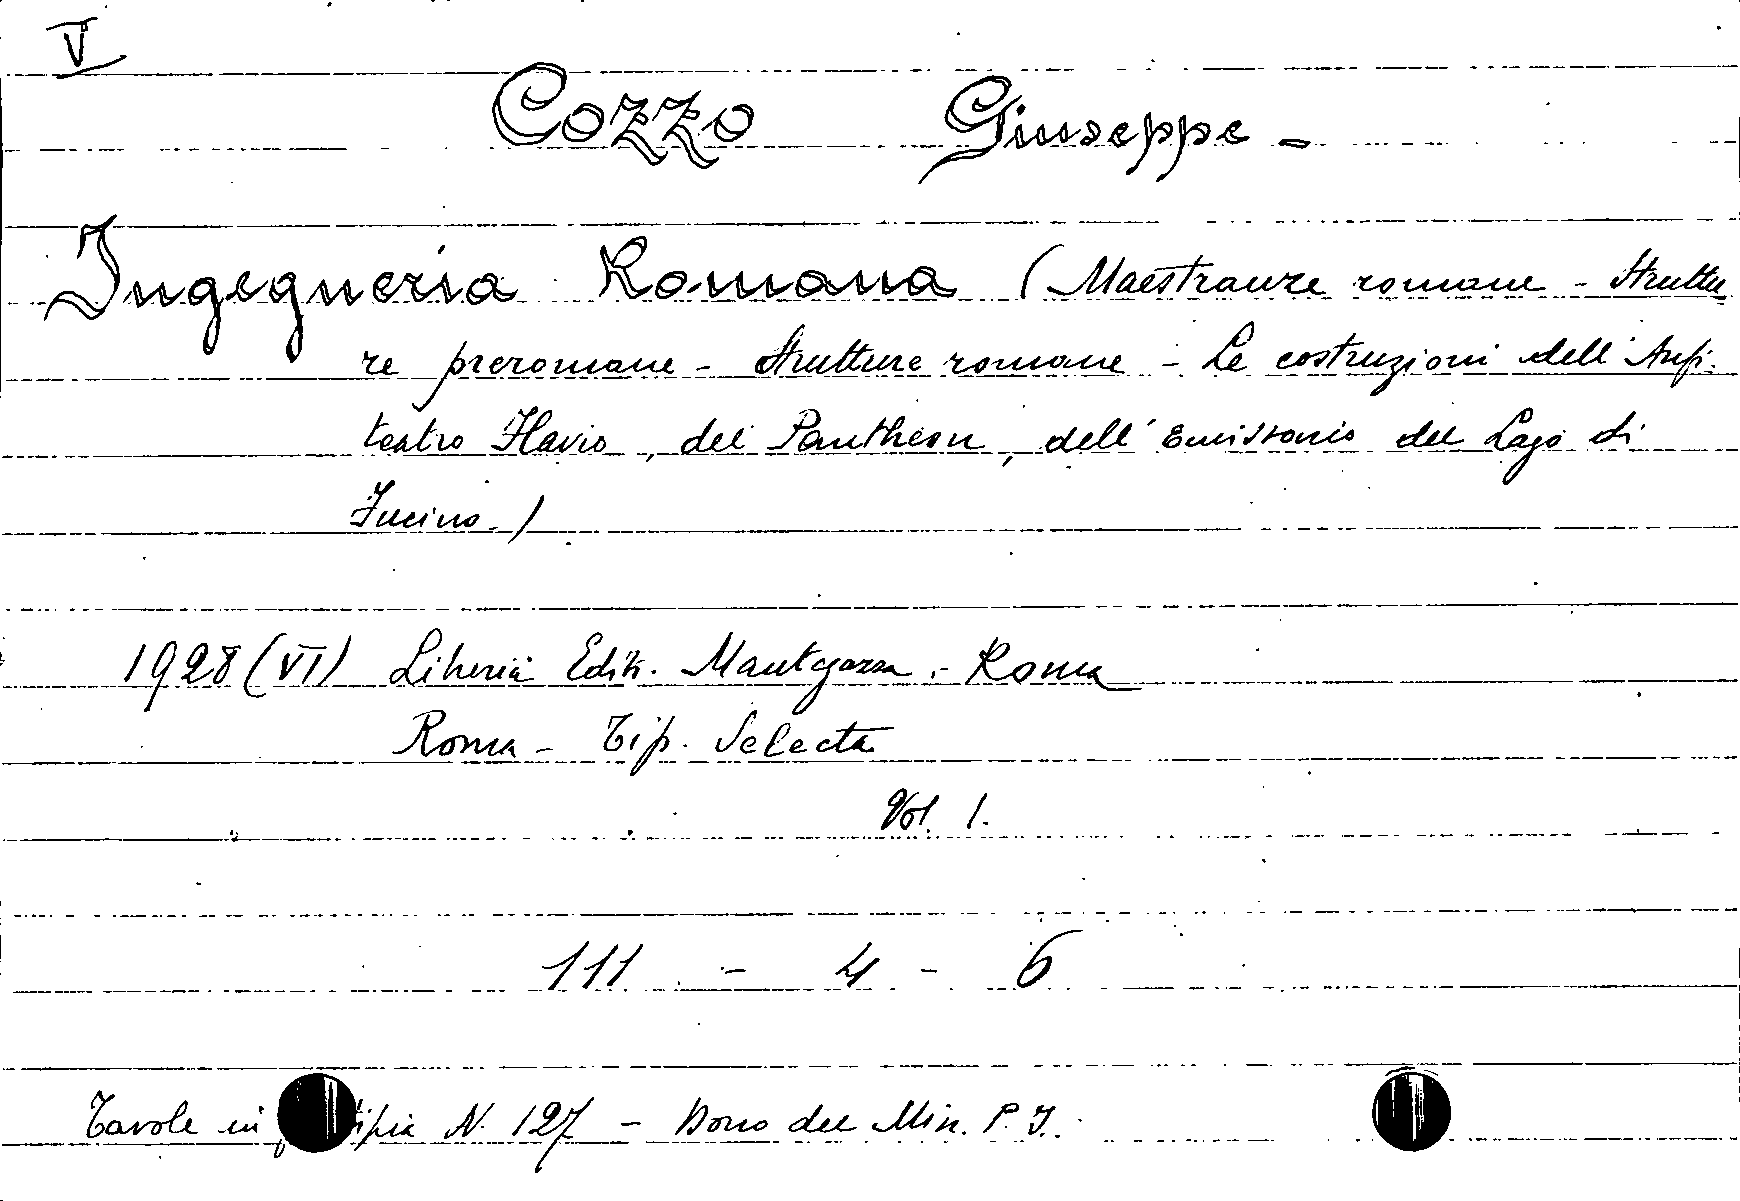 V
Cozzo Giuseppe -
Ingegneria Romana (Maestranze romane - Struttu
re preromane - Strutture romane - Le costruzioni dell'Anfi-
teatro Flavio, del Pantheon, dell'Emissario del Lago di
Fucino.)
1928 (VI) Libreria Edit. Mantegazza - Roma
Roma - Tip. Selecta
Vol. 1.
111 - 4 - 6
Tavole in N. 127 - Dono del Min. P. I.